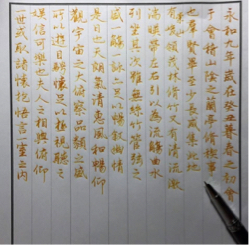 永和九年歲在癸丑暮春之初會
于會稽山陰之蘭亭脩禊事
也群賢畢至少長咸集此地
有崇山峻領茂林脩竹又有清流激
湍映帶左右引以為流觴曲水
列坐其次雖無絲竹管弦之
盛一觴一詠亦足以暢敘幽情
是日也天朗氣清惠風和暢仰
觀宇宙之大俯察品類之盛
所以遊目騁懷足以極視聽之
娛信可樂也夫人之相與俯仰
一世或取諸懷抱悟言一室之內